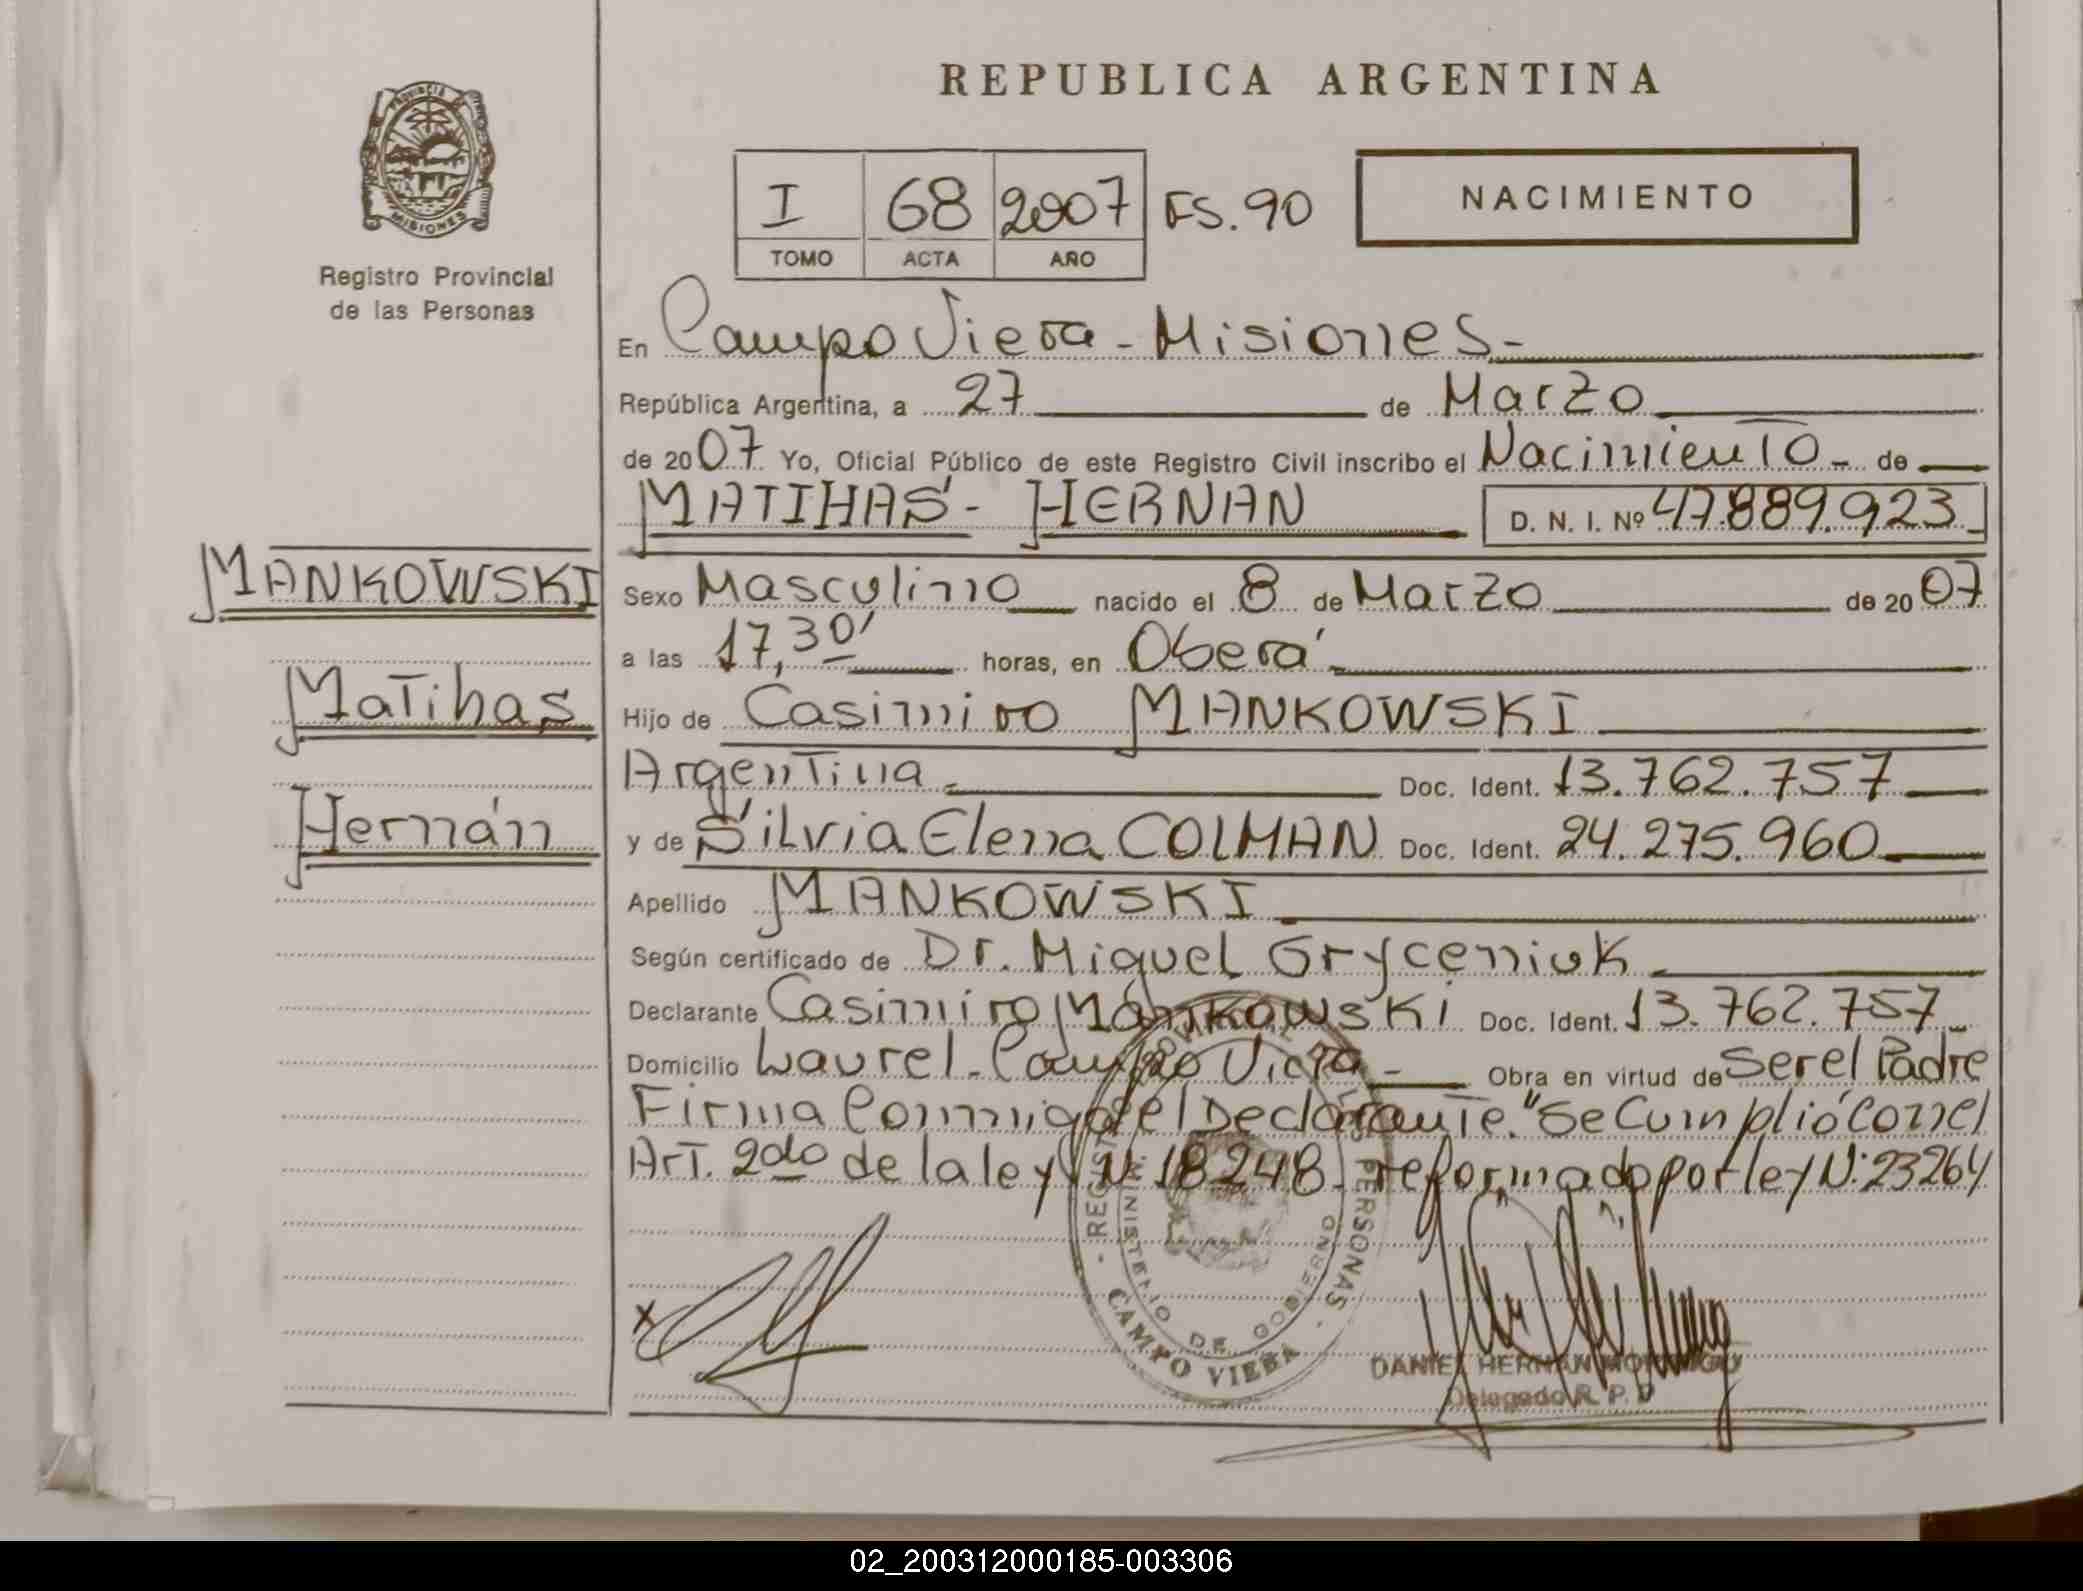 REPUBLICA ARGENTINA
PROVINCIA DE MISIONES
Registro Provincial
de las Personas
I 68 2007 FS. 90
TOMO ACTA AÑO
NACIMIENTO
En Campo Viera - Misiones -
República Argentina, a 27 de Marzo
de 2007 Yo, Oficial Público de este Registro Civil inscribo el Nacimiento - de
MATIHAS - HERNAN D. N. I. Nº 47.889.923
MANKOWSKI
Matihas
Hernán
Sexo Masculino nacido el 8 de Marzo de 2007
a las 17,30' horas, en Oberá
Hijo de Casimiro MANKOWSKI
Argentina Doc. Ident. 13.762.757
y de Silvia Elena COLMAN Doc. Ident. 24.275.960
Apellido MANKOWSKI
Según certificado de Dr. Miguel Gryceniuk
Declarante Casimiro Mankowski Doc. Ident. 13.762.757
Domicilio Laurel - Campo Viera - Obra en virtud de Ser el Padre
Firma Conmigo el Declarante. "Se Cumplió Con el
Art. 2do de la ley N: 18248 reformado por ley N: 23264
REGISTRO PROVINCIAL DE LAS PERSONAS
MINISTERIO DE GOBIERNO
CAMPO VIERA
X
DANIEL HERNAN
Delegado R. P. P
02_200312000185-003306